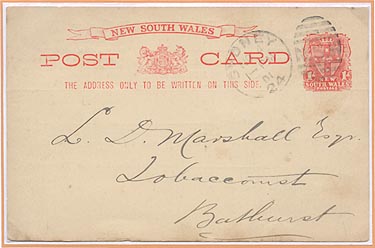 NEW SOUTH WALES
POST CARD
THE ADDRESS ONLY TO BE WRITTEN ON THIS SIDE.
SYDNEY
24
SOUTH WALES
L. D. Marshall Esqr.
Tobacconist
Bathurst